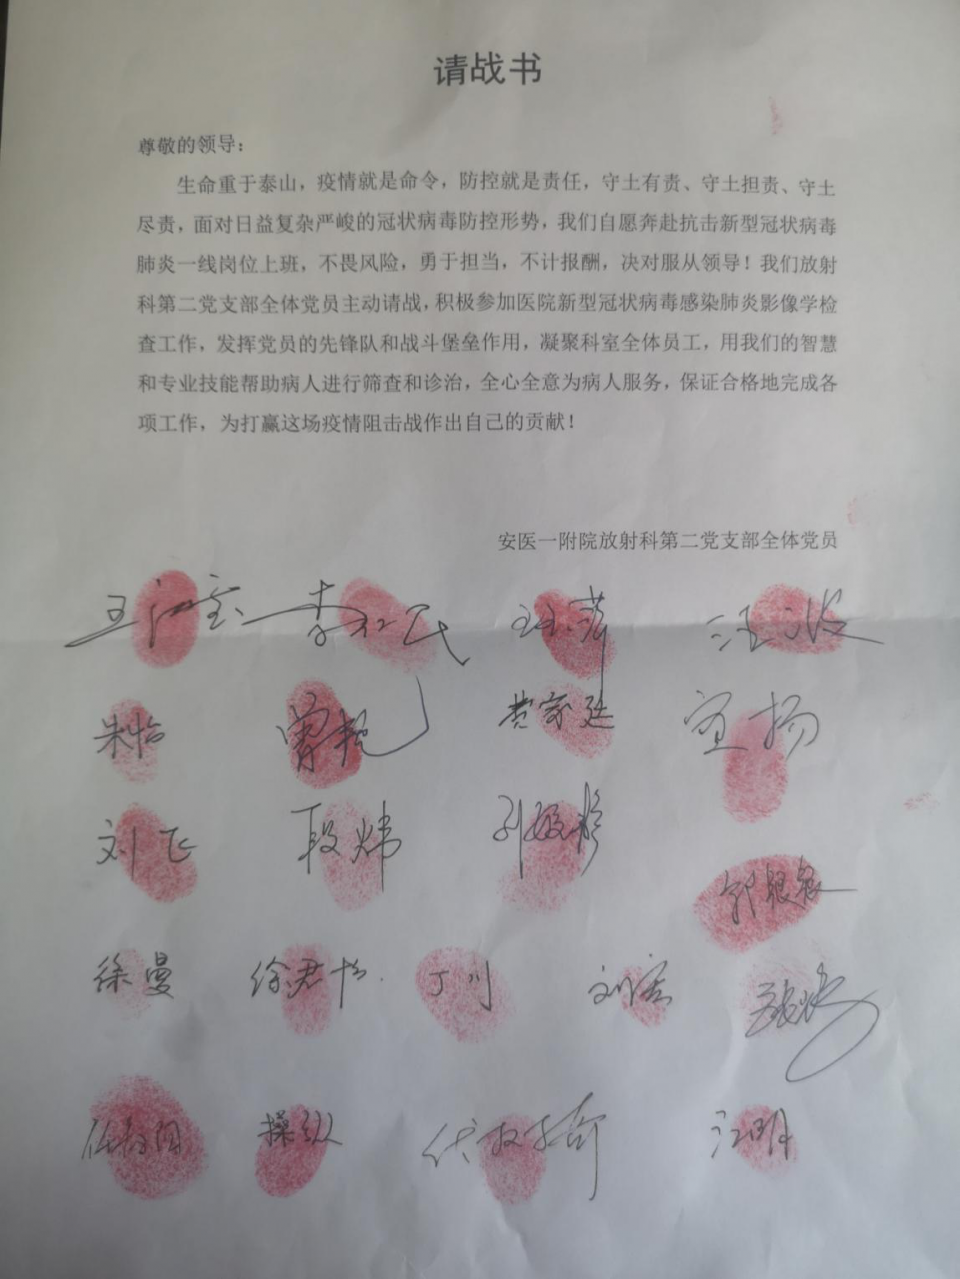 请战书
尊敬的领导：
生命重于泰山，疫情就是命令，防控就是责任，守土有责、守土担责、守土
尽责，面对日益复杂严峻的冠状病毒防控形势，我们自愿奔赴抗击新型冠状病毒
肺炎一线岗位上班，不畏风险，勇于担当，不计报酬，决对服从领导！我们放射
科第二党支部全体党员主动请战，积极参加医院新型冠状病毒感染肺炎影像学检
查工作，发挥党员的先锋队和战斗堡垒作用，凝聚科室全体员工，用我们的智慧
和专业技能帮助病人进行筛查和诊治，全心全意为病人服务，保证合格地完成各
项工作，为打赢这场疫情阻击战作出自己的贡献！
安医一附院放射科第二党支部全体党员
朱怡 曾艳 黄家廷 宣扬
刘飞 段炜
徐曼 徐君怡 丁川
操纵 江明